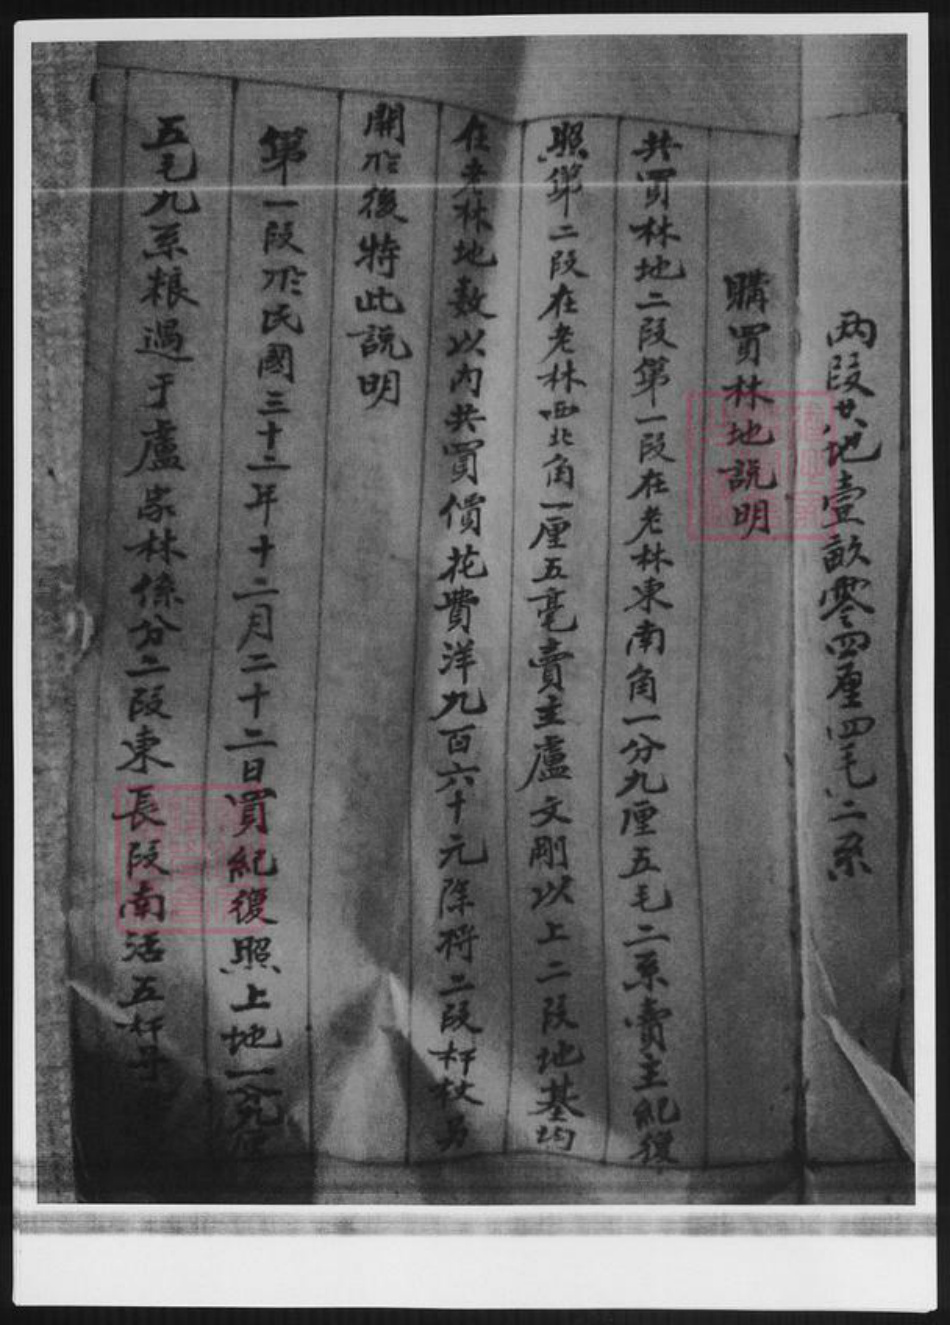 两段共地壹畝零四厘四毛二系
購買林地説明
共買林地二段第一段在老林東南角一分九厘五毛二系賣主紀復
照第二段在老林西北角一厘五毫賣主盧文剛以上二段地基均
在老林地数以内共買價花費洋九百六十元除將二段杆杖另
開於後特此説明
第一段於民國三十二年十二月二十二日買紀復照上地一分九厘
五毛九系粮過于盧家林係分二段東長段南活五杆